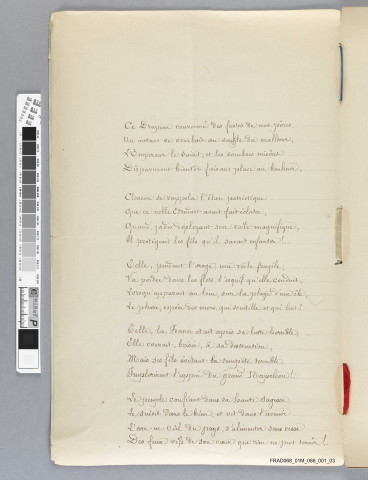 Ce Drapeau couronné des fastes de nos pères,
Un moment se courbait au souffle du malheur,
L'Empereur le saisit, et les sombres misères
Disparurent bientôt faisant place au bonheur,
Chacun se rappela l'élan patriotique
Que ce noble Etendard avait fait éclater,
Quand, jadis déployant son voile magnifique,
Il protégeait les fils qu'il savait enfanter !
Telle, pendant l'orage une voile fragile,
Va perdre dans les flots l'esquif qu'elle conduit,
Lorsqu'apparait au loin, sur la plage d'une île
Le phare, espoir des mers, qui scintille et qui luit !
Telle, la France était après sa lutte horrible
Elle courait, brisée, à sa destruction,
Mais ses fils évitant la tempête terrible
Implorèrent l'appui du grand Napoléon !
Le peuple confiant dans sa haute sagesse
Le suivit dans le bien, et vit dans l'avenir
L'arc-en-ciel du pays, s'alimenter sans cesse
Des feux vifs de son cœur que rien ne peut ternir !
FRAD068_01M_086_001_03